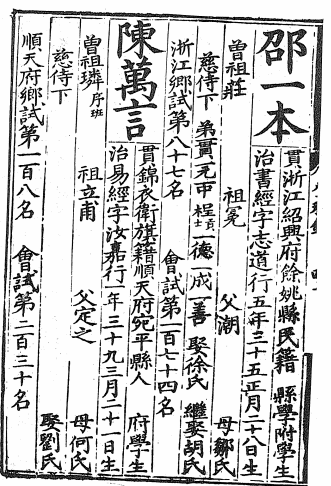 邵一本
貫浙江紹興府餘姚縣民籍 縣學附學生
治書經字志道行五年三十五正月二十八日生
曾祖莊 祖冕 父潮 母鄒氏
慈侍下 弟 一德一成一善 娶徐氏 繼娶胡氏
浙江鄉試第八十七名 會試第一百七十四名
陳萬言
貫錦衣衛旗籍順天府宛平縣人 府學生
治易經字汝嘉行一年三十九三月二十一日生
曾祖璘序班 祖立甫 父定之 母何氏
慈侍下 娶劉氏
順天府鄉試第一百八名 會試第二百三十名